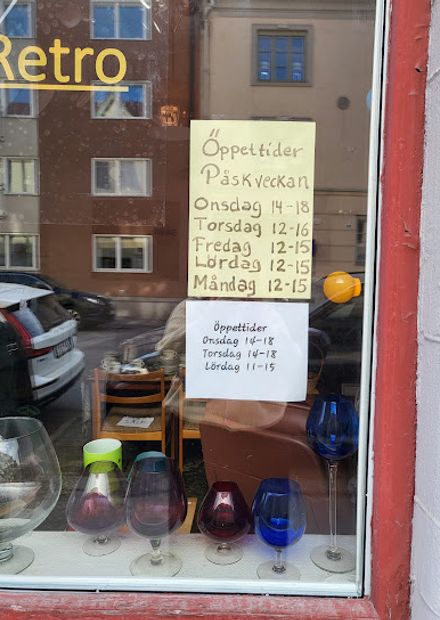 Retro
Öppettider
Påskveckan
Onsdag 14-18
Torsdag 12-16
Fredag 12-15
Lördag 12-15
Måndag 12-15
Öppettider
Onsdag 14-18
Torsdag 14-18
Lördag 11-15